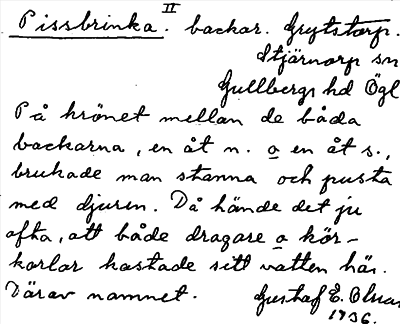 Pissbrinka. II backar. Grytstorp.
Stjärnorp sn
Gullbergs hd Ögl
På krönet mellan de båda
backarna, en åt n. o en åt s.,
brukade man stanna och pusta
med djuren. Då hände det ju
ofta, att både dragare o kör-
karlar kastade sitt vatten här.
Därav namnet. Gustaf E. Olsson
1936.